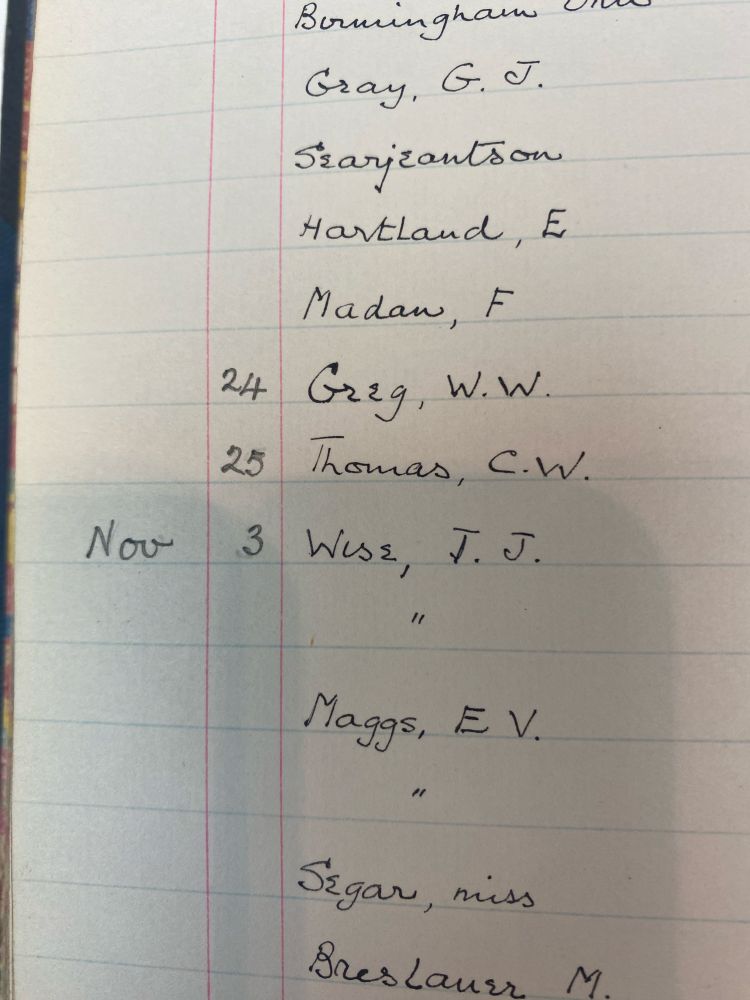 Birmingham
Gray, G. J.
Searjeantson
Hartland, E
Madan, F
24 Greg, W. W.
25 Thomas, C. W.
Nov 3 Wise, T. J.
"
Maggs, E V.
"
Segar, miss
Breslauer M.